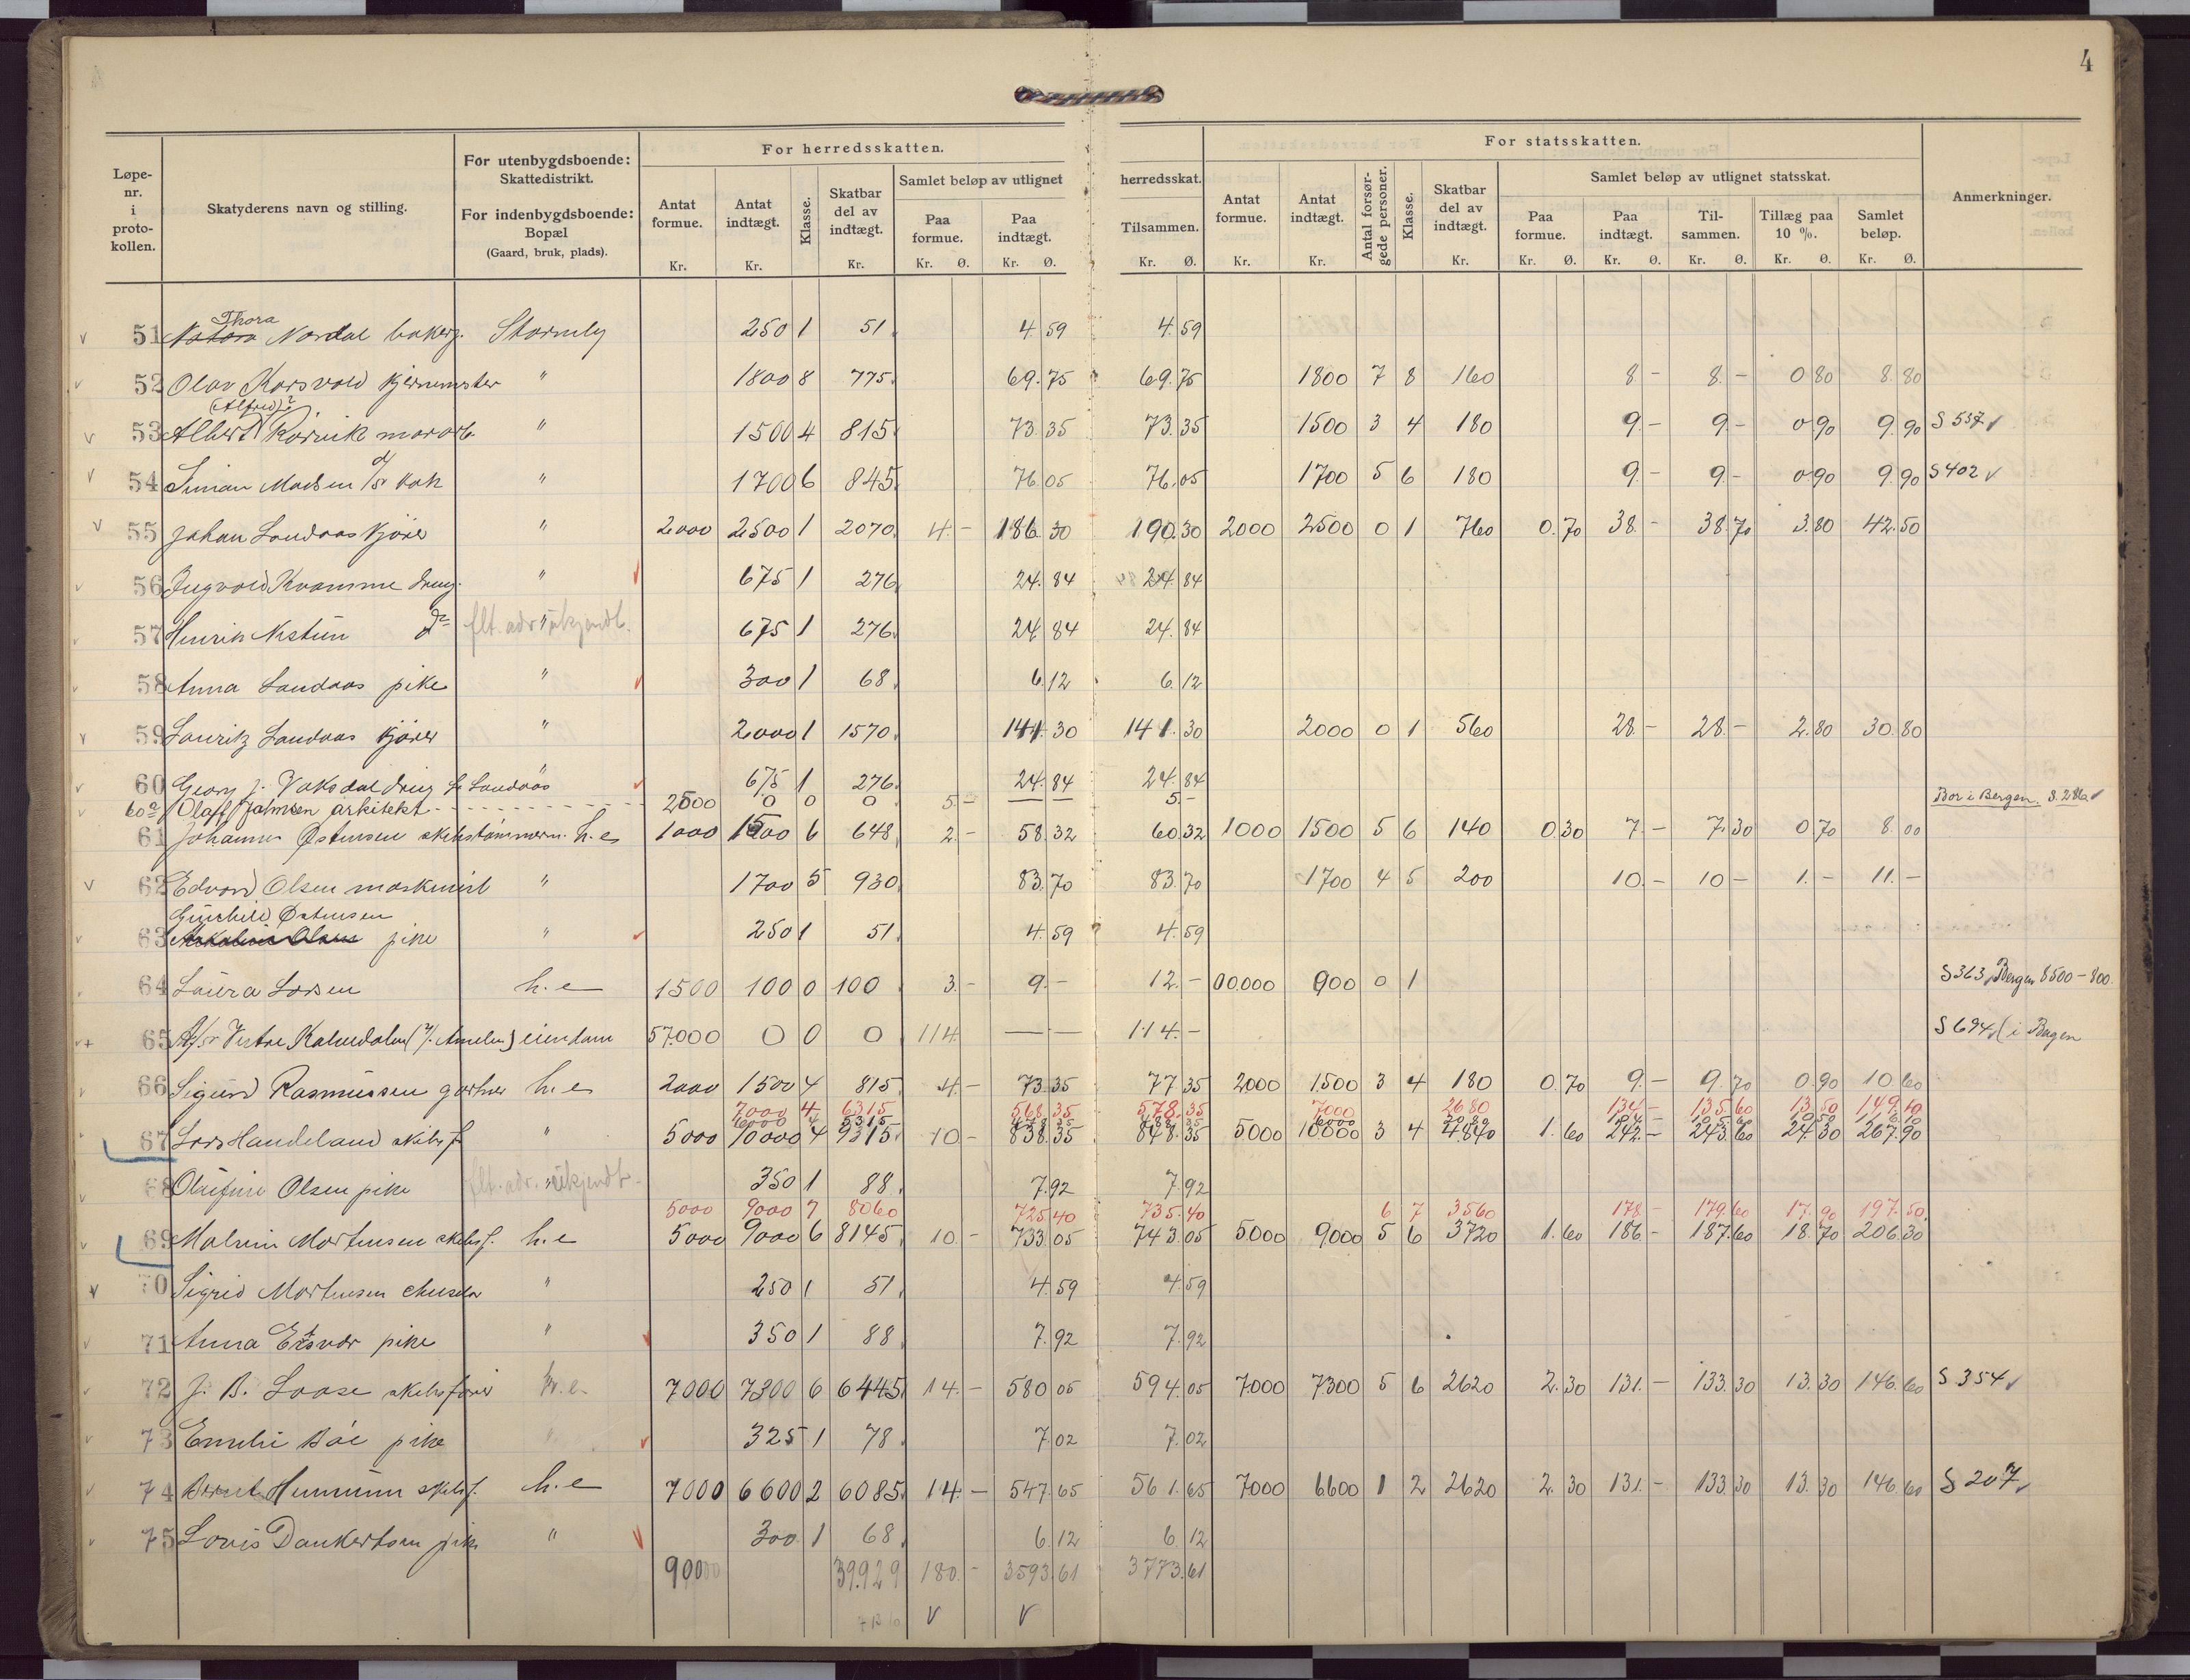 4
Løpe-nr. i proto-kollen.
Skatyderens navn og stilling.
For utenbygdsboende: Skattedistrikt. For indenbygdsboende: Bopæl (Gaard, bruk, plads).
For herredsskatten.
Antat formue. Kr.
Antat indtægt. Kr.
Klasse.
Skatbar del av indtægt. Kr.
Samlet beløp av utlignet herredsskat.
Paa formue. Kr. Ø.
Paa indtægt. Kr. Ø.
Tilsammen. Kr. Ø.
For statsskatten.
Antat formue. Kr.
Antat indtægt. Kr.
Antal forsør-gede personer.
Klasse.
Skatbar del av indtægt. Kr.
Samlet beløp av utlignet statsskat.
Paa formue. Kr. Ø.
Paa indtægt. Kr. Ø.
Til-sammen. Kr. Ø.
Tillæg paa 10 %. Kr. Ø.
Samlet beløp. Kr. Ø.
Anmerkninger.
Thora
51 Nordal bakerj. Stormly 250 1 51 4.59 4.59
52 Olav Korsvold " 1800 8 775 69.75 69.75 1800 7 8 160 8.- 8.- 0.80 8.80
(Alfred)?
53 Albert Rørvik " 1500 4 815 73.35 73.35 1500 3 4 180 9.- 9.- 0.90 9.90 S 537
54 Simon Madsen " 1700 6 845 76.05 76.05 1700 5 6 180 9.- 9.- 0.90 9.90 S 402
55 Johan Landaas kjører " 2000 2500 1 2070 4.- 186.30 190.30 2000 2500 0 1 760 0.70 38.- 38.70 3.80 42.50
56 Ingvald Kvamme dreng " 675 1 276 24.84 24.84
57 Henrik Nistun do " flt. adr. ukjendt. 675 1 276 24.84 24.84
58 Anna Landaas pike " 300 1 68 6.12 6.12
59 Lauritz Landaas kjører " 2000 1 1570 141.30 141.30 2000 0 1 560 28.- 28.- 2.80 30.80
60 Georg J. Vaksdal dreng L. Landaas " 675 1 276 24.84 24.84
60a Olaff Johnsen arkitekt 2500 0 0 0 5.- — 5.- Bor i Bergen. S. 286
61 Johannes Østensen skibstømmerm. h.e 1000 1500 6 648 2.- 58.32 60.32 1000 1500 5 6 140 0.30 7.- 7.30 0.70 8.00
62 Edvard Olsen maskinist " 1700 5 930 83.70 83.70 1700 4 5 200 10.- 10.- 1.- 11.-
Gunhild Østensen
63 pike " 250 1 51 4.59 4.59
64 Laura Larsen h.e 1500 100 0 100 3.- 9.- 12.- 00.000 900 0 1 S 363 Bergen 8500-800
65 A/S Vestre Kalvedalen eiendom 57.000 0 0 0 114 — 114.- S 694 (i Bergen
66 Sigurd Rasmussen gartner h.e 2000 1500 4 815 4.- 73.35 77.35 2000 1500 3 4 180 0.70 9.- 9.70 0.90 10.60
7000 4 6315 568.35 578.35 7000 2680 134.- 135.60 13.50 149.10
6000 4 5315
67 Lars Handeland skibsf. " 5000 10000 4 9315 10.- 838.35 848.35 5000 10000 3 4 4840 1.60 242.- 243.60 24.30 267.90
68 Olufine Olsen pike " flt. adr. ukjendt. 350 1 88 7.92 7.92
5000 9000 7 8060 725.40 735.40 6 7 3560 178.- 179.60 17.90 197.50
69 Malvin Mortensen skibsf. h.e 5000 9000 6 8145 10.- 733.05 743.05 5000 9000 5 6 3720 1.60 186.- 187.60 18.70 206.30
70 Sigrid Mortensen " 250 1 51 4.59 4.59
71 Anna pike " 350 1 88 7.92 7.92
72 J. B. Laase skibsfører h.e. 7000 7300 6 6445 14.- 580.05 594.05 7000 7300 5 6 2620 2.30 131.- 133.30 13.30 146.60 S 354
73 Emelie Bøe pike " 325 1 78 7.02 7.02
74 Bernt skibsf. h.e 7000 6600 2 6085 14.- 547.65 561.65 7000 6600 1 2 2620 2.30 131.- 133.30 13.30 146.60 S 207
75 Lovis Dankertsen pike " 300 1 68 6.12 6.12
90000 39.929 180.- 3593.61 3773.61